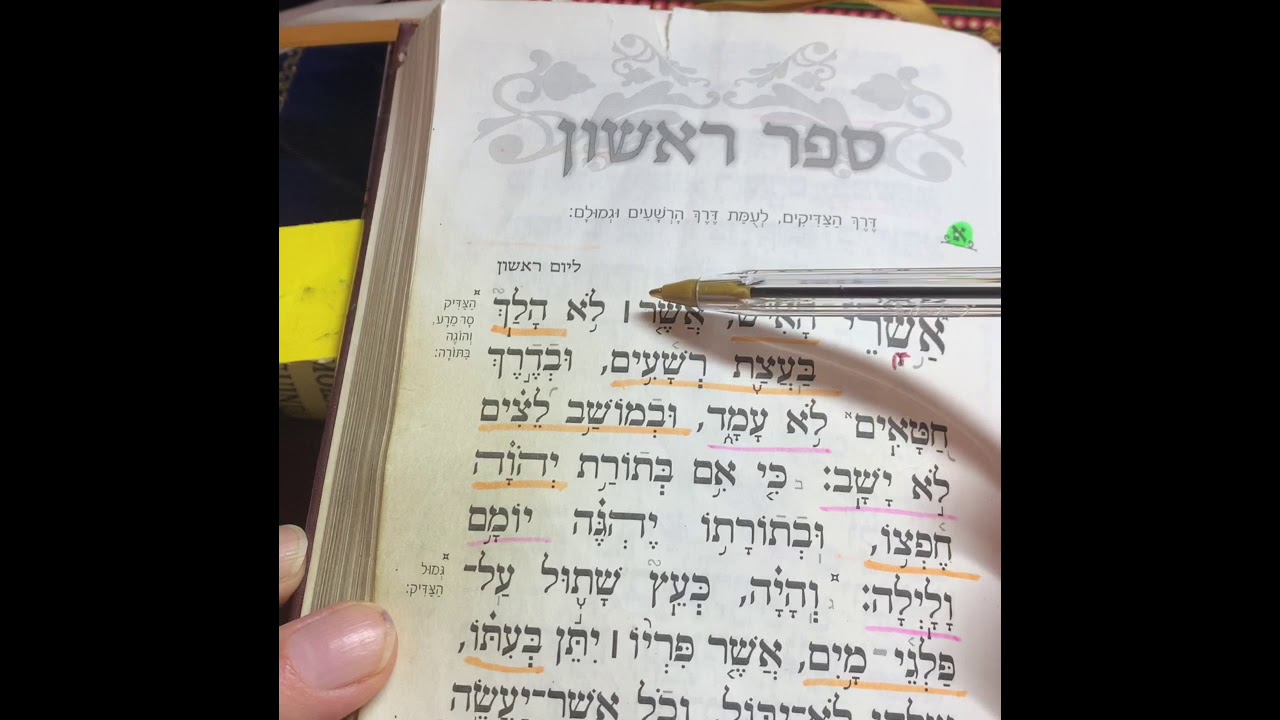 ספר ראשון
דֶּרֶךְ הַצַּדִּיקִים, לְעֻמַּת דֶּרֶךְ הָרְשָׁעִים וּגְמוּלָם:
א
ליום ראשון
אַשְׁרֵי הָאִישׁ, אֲשֶׁר ׀ לֹא הָלַךְ
בַּעֲצַת רְשָׁעִים, וּבְדֶרֶךְ
חַטָּאִים לֹא עָמָד, וּבְמוֹשַׁב לֵצִים
לֹא יָשָׁב: ב כִּי אִם בְּתוֹרַת יְהוָה
חֶפְצוֹ, וּבְתוֹרָתוֹ יֶהְגֶּה יוֹמָם
וָלָיְלָה: ג וְהָיָה, כְּעֵץ שָׁתוּל עַל־
פַּלְגֵי מָיִם, אֲשֶׁר פִּרְיוֹ ׀ יִתֵּן בְּעִתּוֹ,
וְכֹל אֲשֶׁר־יַעֲשֶׂה
הַצַּדִּיק
סָר מֵרָע,
וְהוֹגֶה
בַּתּוֹרָה:
גְּמוּל
הַצַּדִּיק: